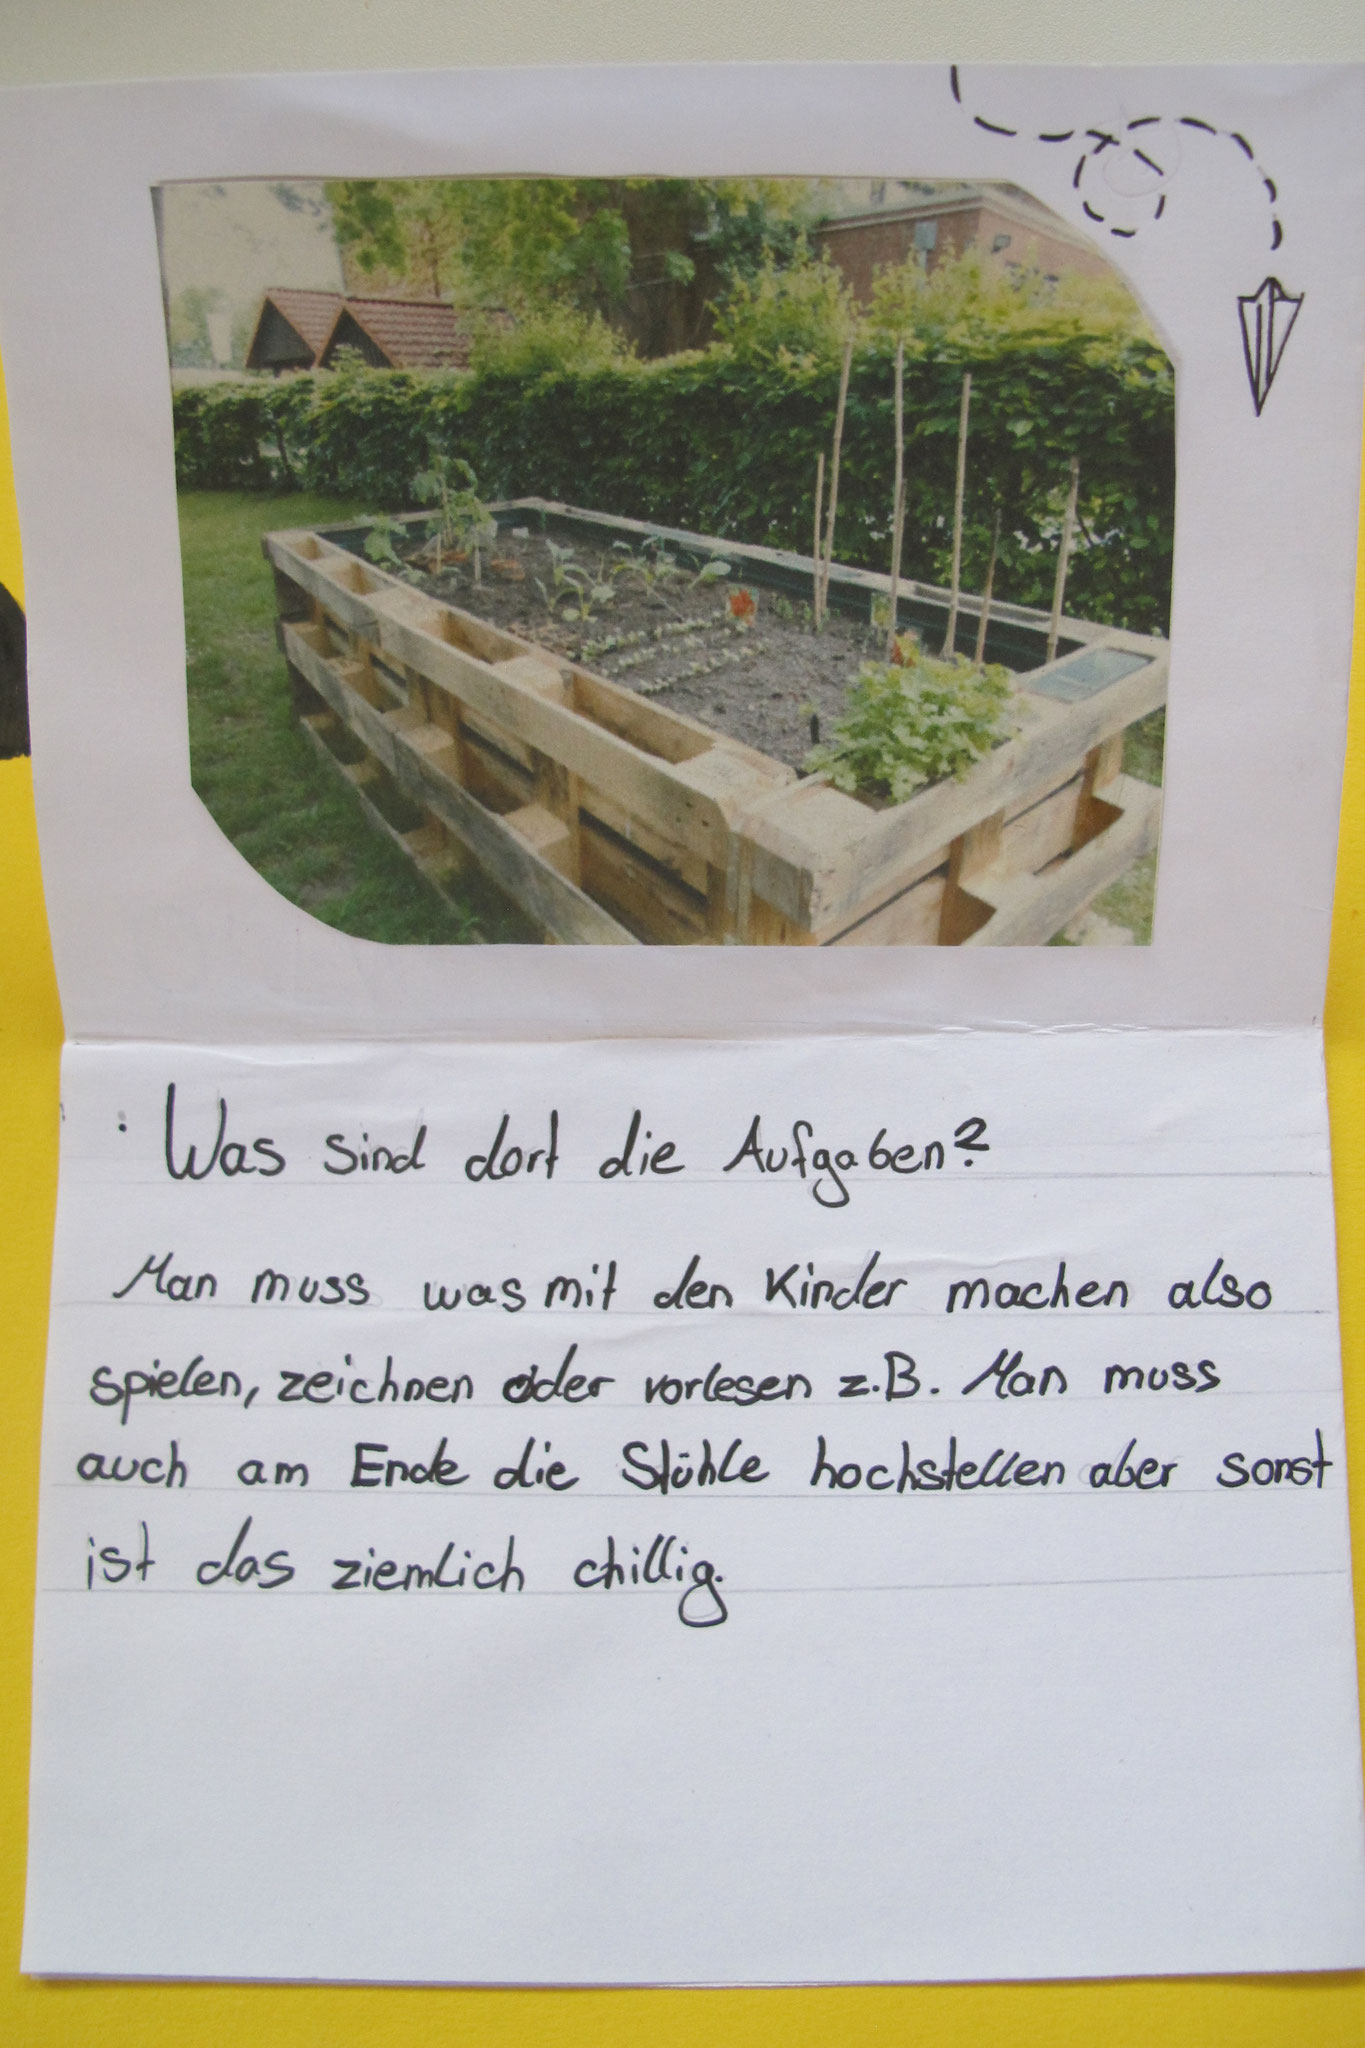 Was sind dort die Aufgaben?
Man muss was mit den Kinder machen also
spielen, zeichnen oder vorlesen z.B. Man muss
auch am Ende die Stühle hochstellen aber sonst
ist das ziemlich chillig.